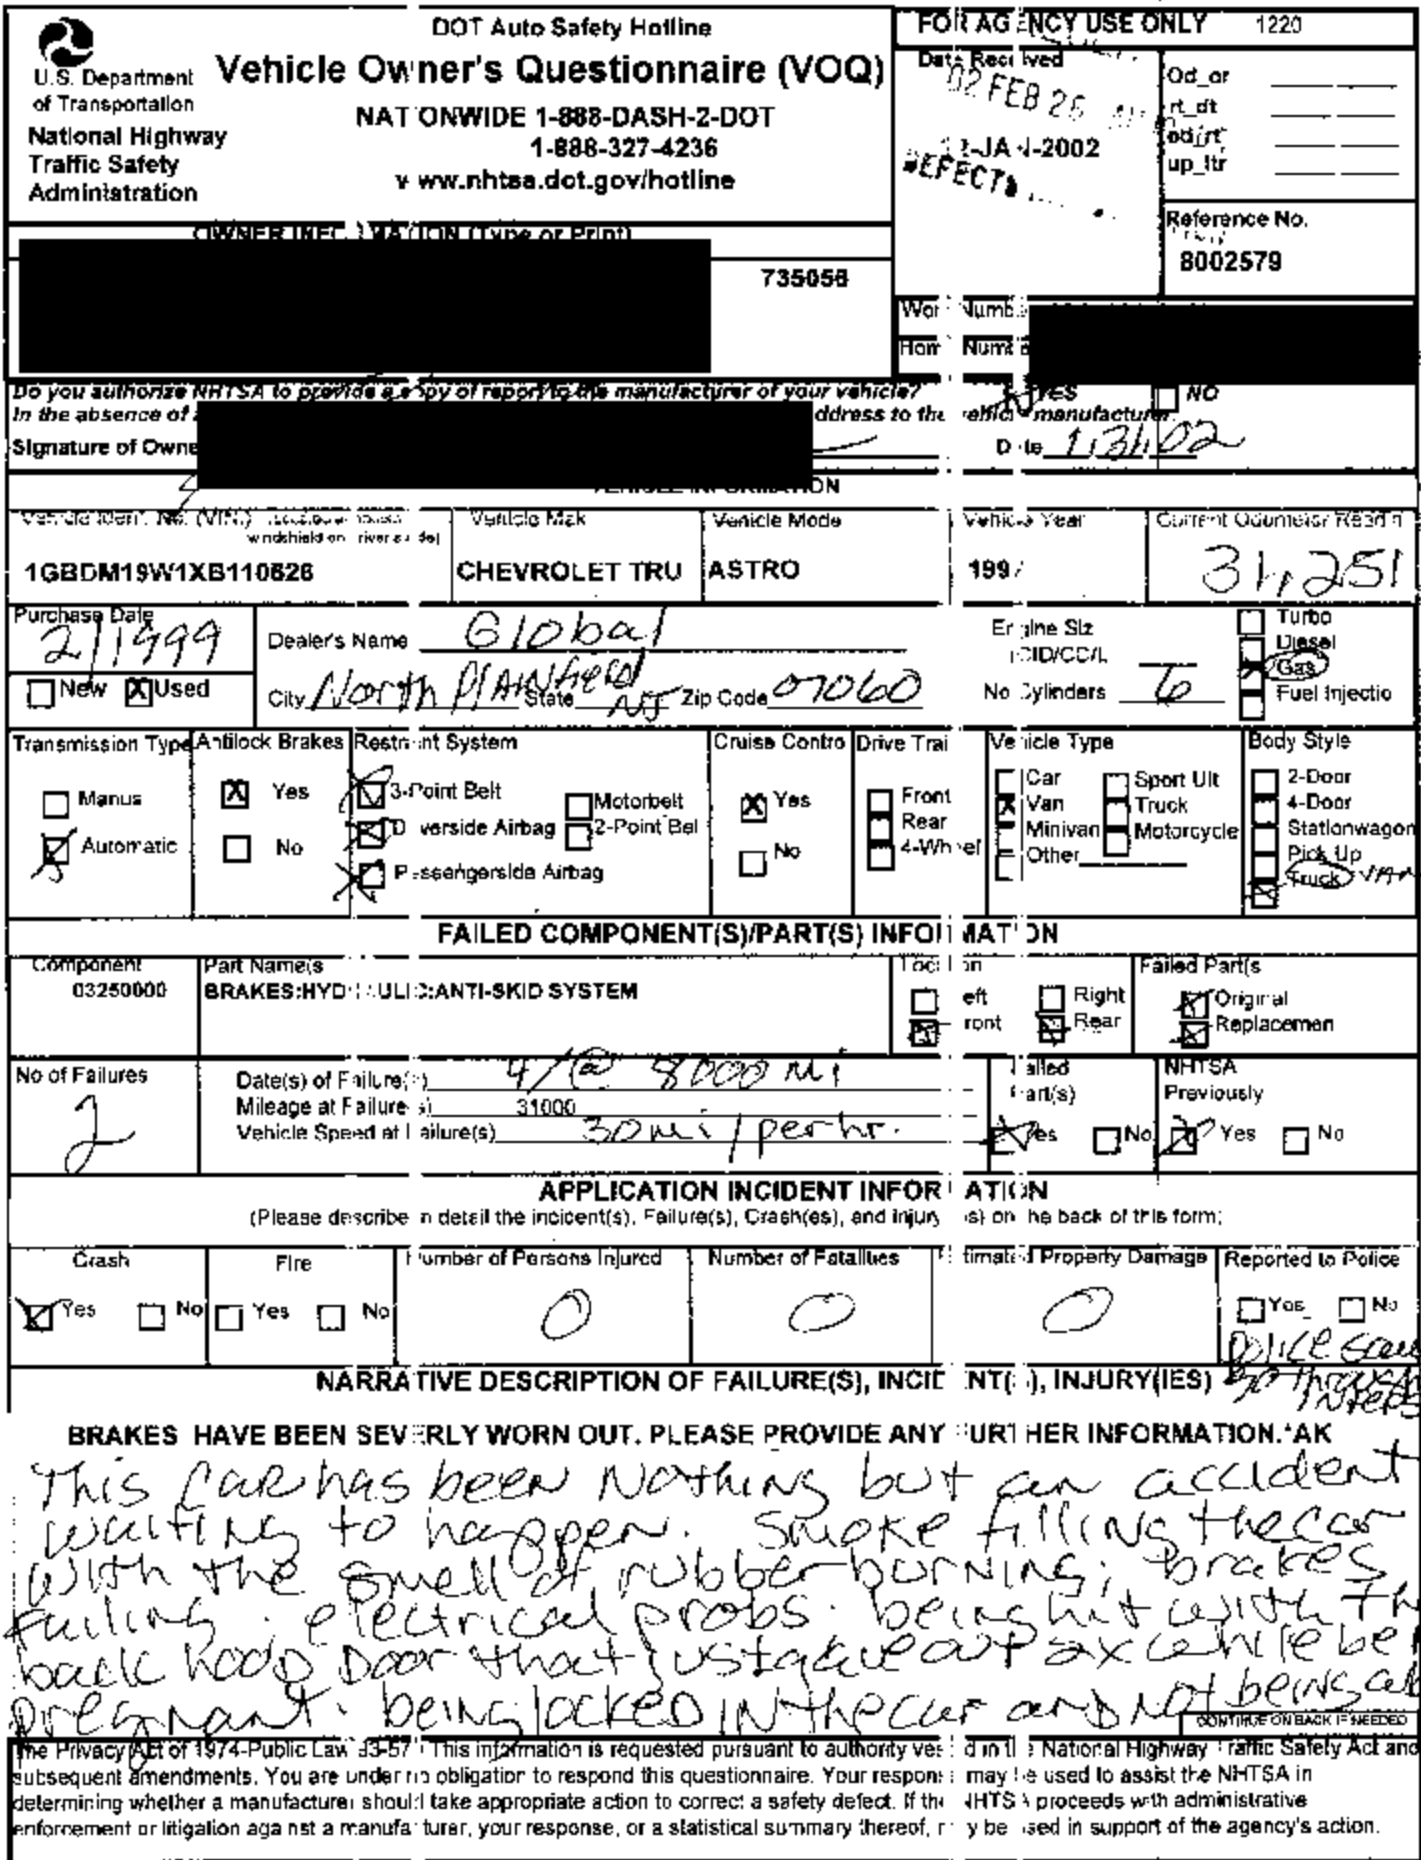 DOT Auto Safety Hotline
Vehicle Owner's Questionnaire (VOQ)
NATIONWIDE 1-888-DASH-2-DOT
1-888-327-4236
www.nhtsa.dot.gov/hotline
U.S. Department
of Transportation
National Highway
Traffic Safety
Administration
FOR AGENCY USE ONLY 1220
Date Received
02 FEB 26
-JAN-2002
DEFECTS
Od_or
rt_dt
od/rt
up_ltr
Reference No.
8002579
OWNER INFORMATION (Type or Print)
735056
Work Number
Home Number
Do you authorize NHTSA to provide a copy of report to the manufacturer of your vehicle? YES NO
In the absence of address to the vehicle manufacturer.
Signature of Owne Date 1/31/02
VEHICLE INFORMATION
Vehicle Ident. No. (VIN)
windshield on driver's side)
1GBDM19W1XB110626
Vehicle Mak
CHEVROLET TRU
Vehicle Mode
ASTRO
Vehicle Year
199
Current Odometer Readin
31,251
Purchase Date
2/1999
New X Used
Dealer's Name Global
City North Plainfield State NJ Zip Code 07060
Engine Siz
CID/CC/L
No Cylinders 6
Turbo
Diesel
Gas
Fuel Injectio
Transmission Type
Manua
Automatic
Antilock Brakes
X Yes
No
Restraint System
3-Point Belt
Driverside Airbag
Passengerside Airbag
Motorbelt
2-Point Bel
Cruise Contro
X Yes
No
Drive Trai
Front
Rear
4-Wheel
Vehicle Type
Car
X Van
Minivan
Other
Sport Ult
Truck
Motorcycle
Body Style
2-Door
4-Door
Stationwagon
Pick Up
Truck VAN
FAILED COMPONENT(S)/PART(S) INFORMATION
Component
03250000
Part Name(s
BRAKES:HYDRAULIC:ANTI-SKID SYSTEM
Location
Left
Front
Right
Rear
Failed Part(s
Original
Replacemen
No of Failures
2
Date(s) of Failure(s) 4/@ 8000 mi
Mileage at Failure(s) 31000
Vehicle Speed at Failure(s) 30 mi/per hr.
Failed
Part(s)
Yes No
NHTSA
Previously
Yes No
APPLICATION INCIDENT INFORMATION
(Please describe in detail the incident(s), Failure(s), Crash(es), and injury(ies) on the back of this form;
Crash
Yes No
Fire
Yes No
Number of Persons Injured
0
Number of Fatalities
0
Estimated Property Damage
0
Reported to Police
Yes No
Police saw
go through
inters
NARRATIVE DESCRIPTION OF FAILURE(S), INCIDENT(S), INJURY(IES)
BRAKES HAVE BEEN SEVERLY WORN OUT. PLEASE PROVIDE ANY FURTHER INFORMATION.*AK
This car has been Nothing but an accident
waiting to happen. Smoke filling the car
with the smell of rubber burning; brakes
failing. electrical probs. being hit with th
back hood Door that just gave out 2x while bei
pregnant. being locked in the car and Not being
CONTINUE ON BACK IF NEEDED
The Privacy Act of 1974-Public Law 93-57 This information is requested pursuant to authority vested in the National Highway Traffic Safety Act and
subsequent amendments. You are under no obligation to respond this questionnaire. Your response may be used to assist the NHTSA in
determining whether a manufacturer should take appropriate action to correct a safety defect. If the NHTSA proceeds with administrative
enforcement or litigation against a manufacturer, your response, or a statistical summary thereof, may be used in support of the agency's action.